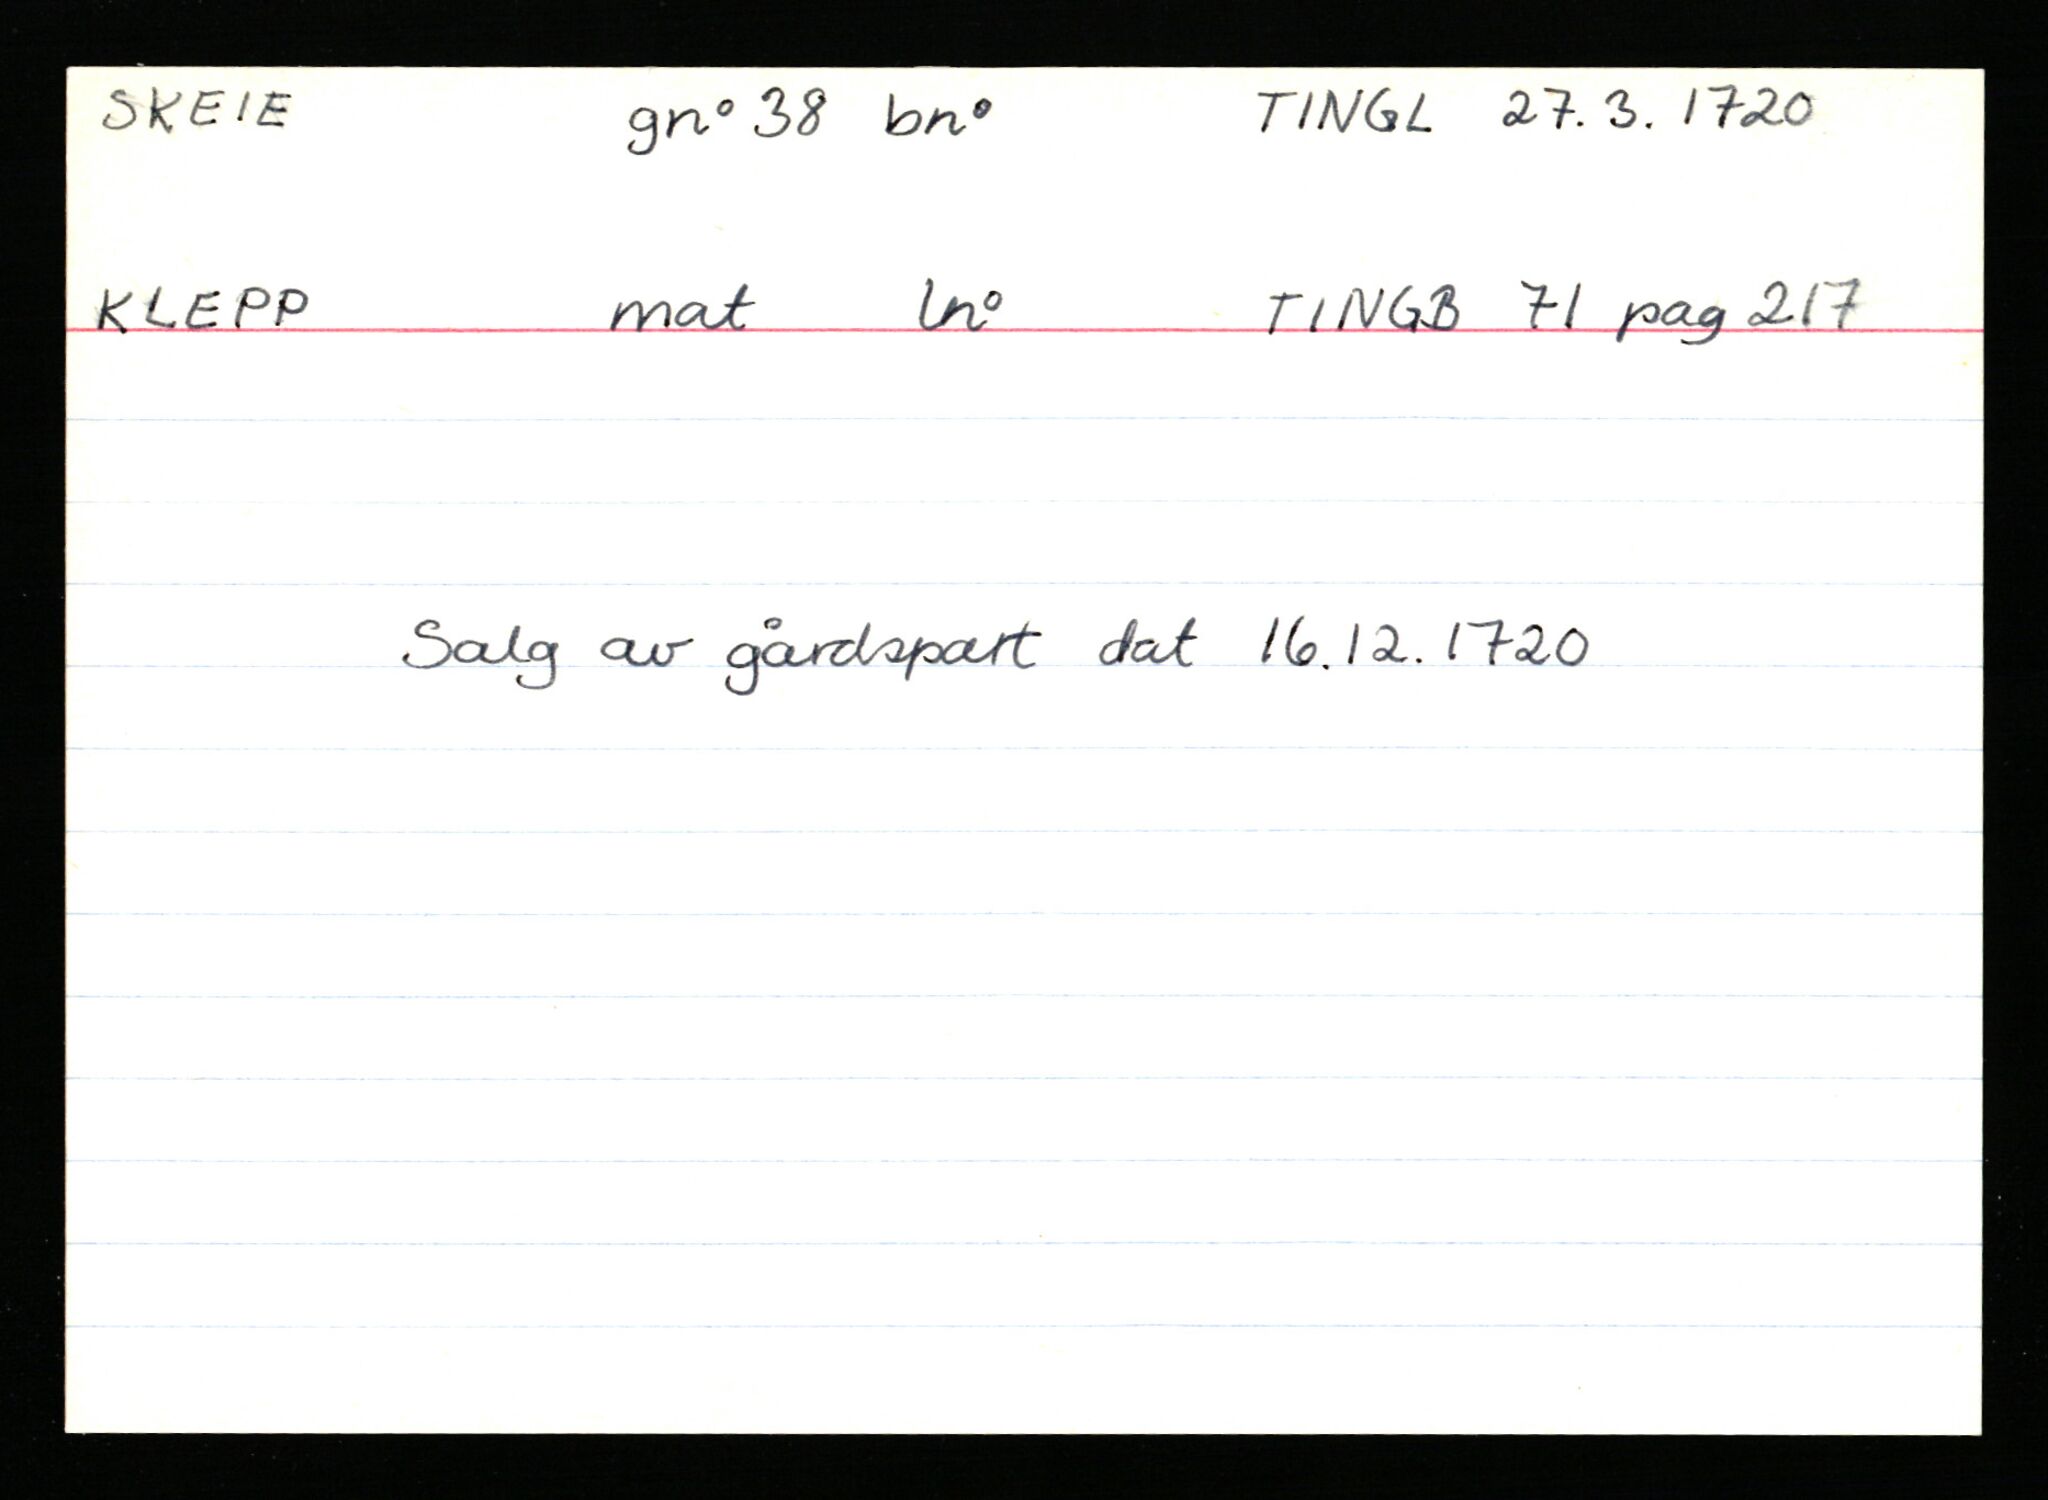 SKEIE gn° 38 bn° TINGL 27.3.1720
KLEPP mat ln° TINGB 71 pag 217
Salg av gårdspart dat 16.12.1720